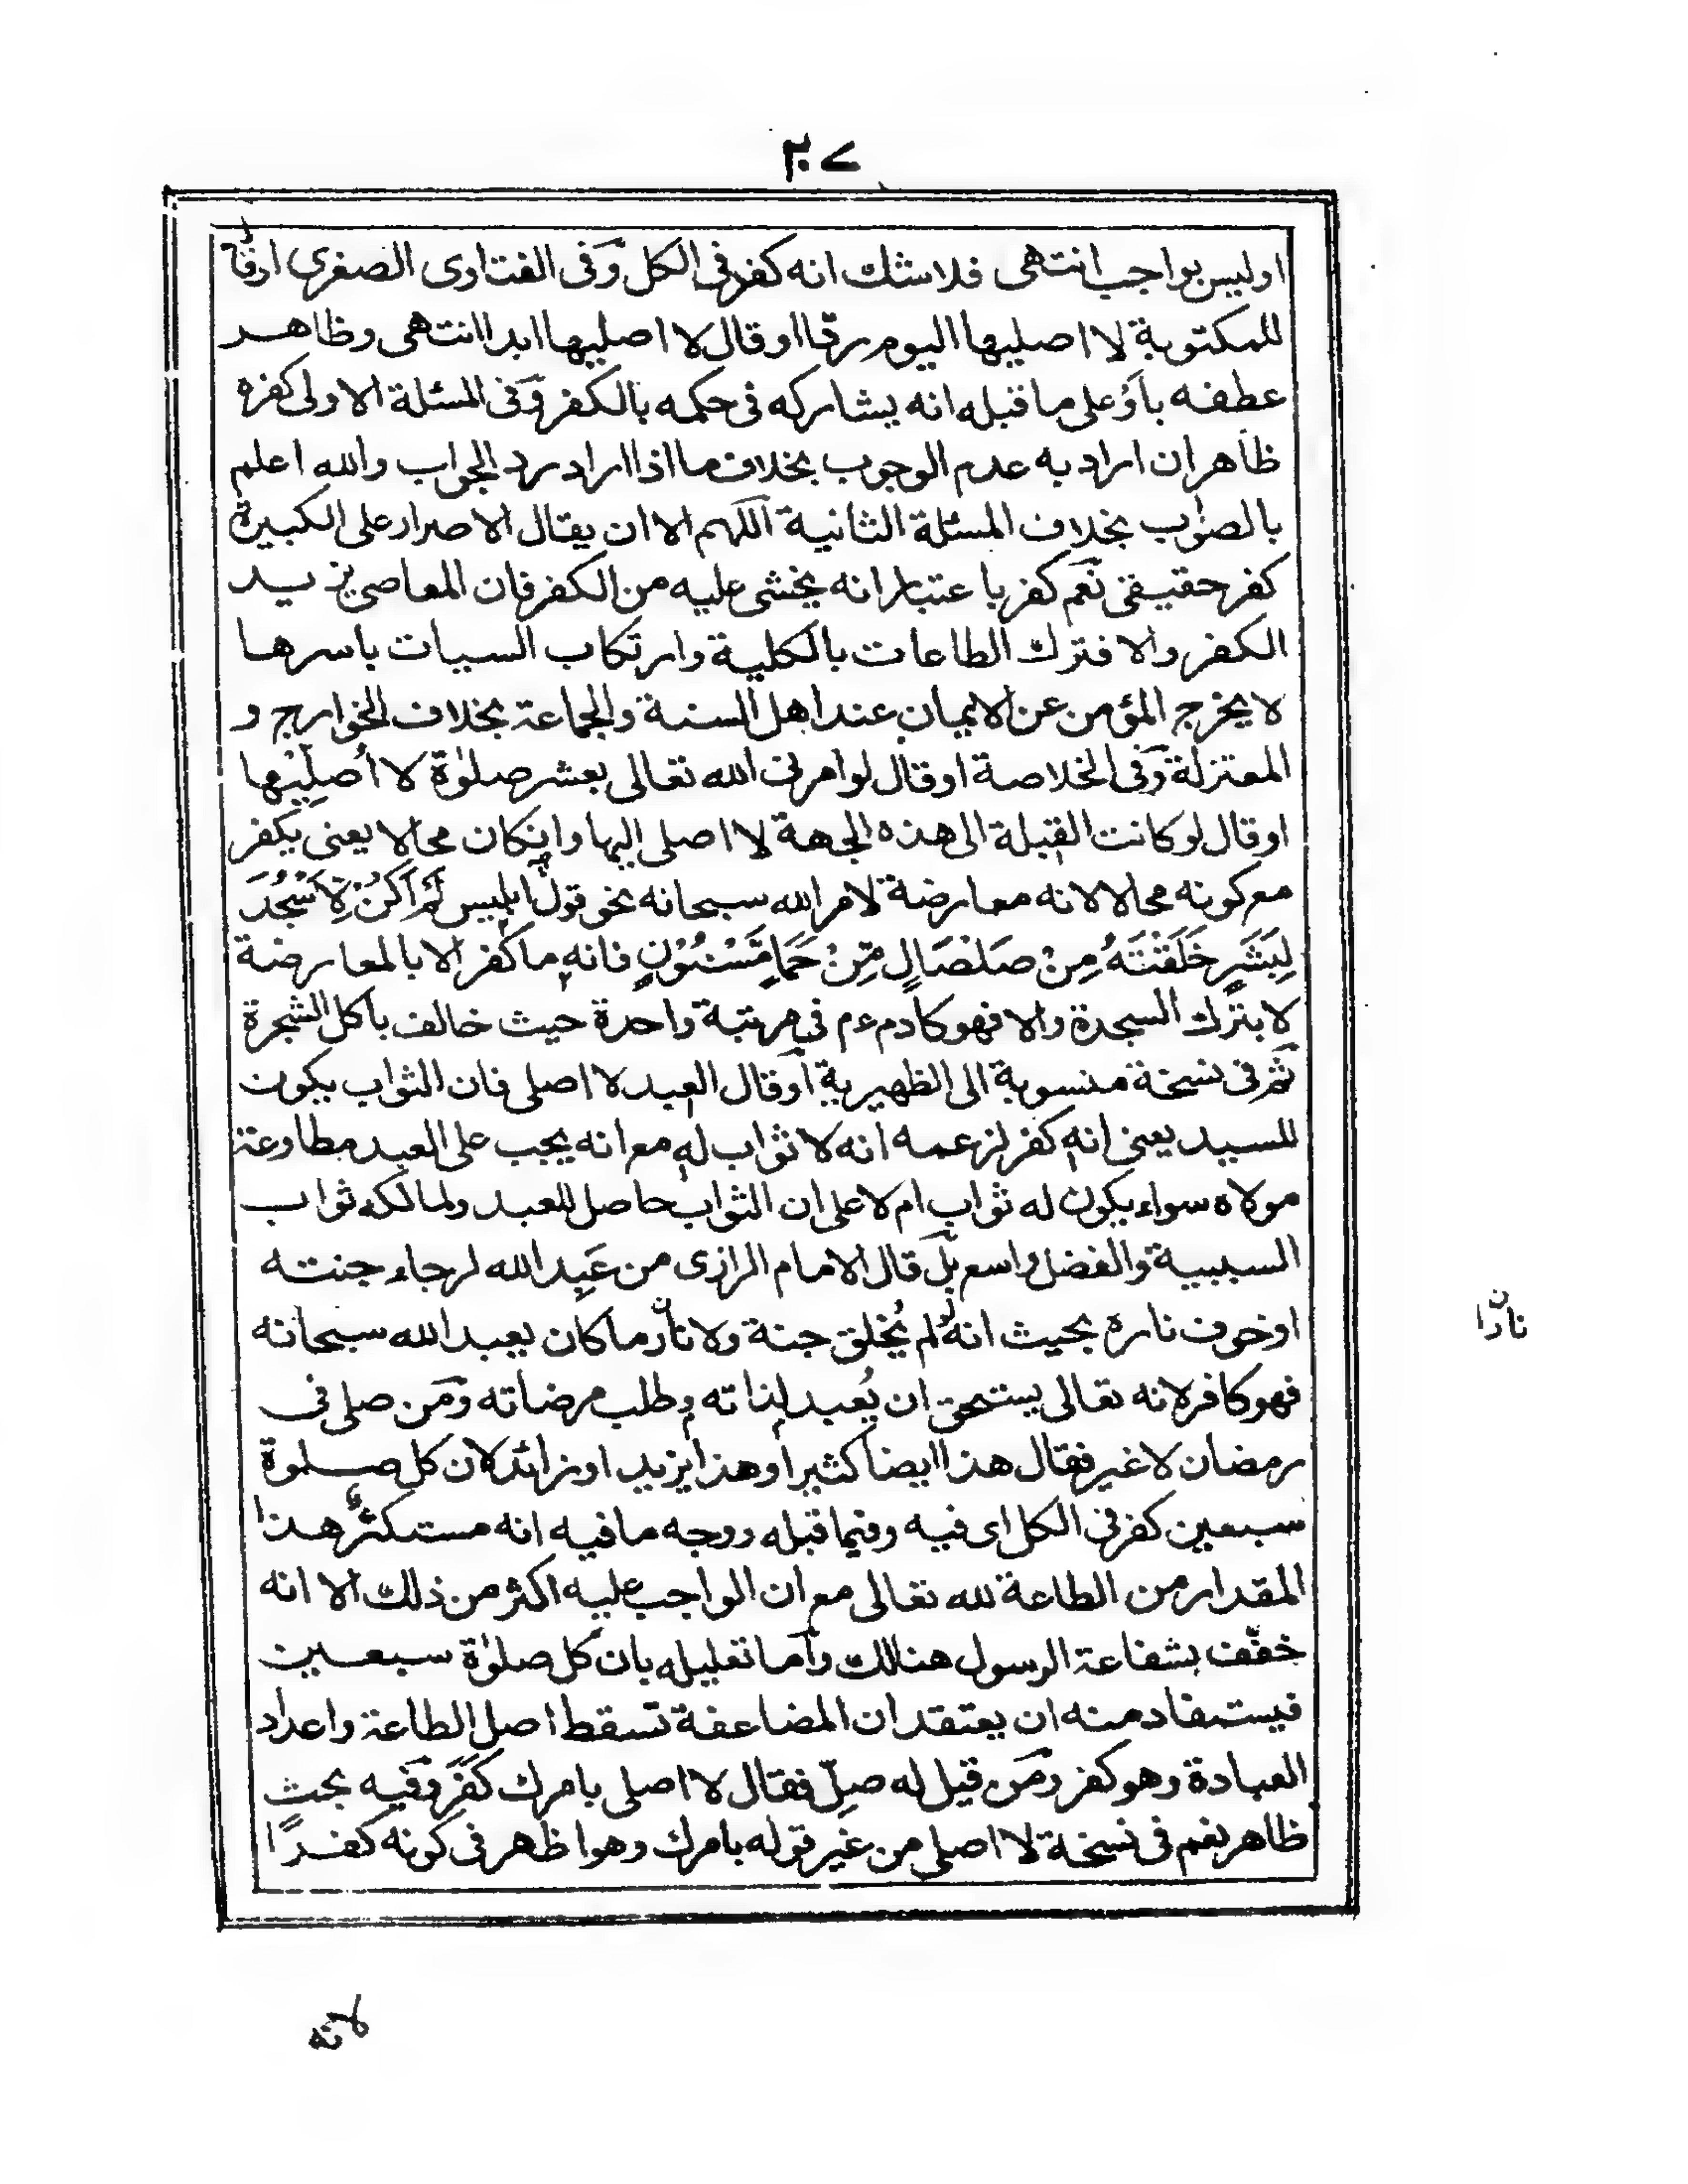 ٢٠٧
اوليس بواجب انتهى فلاشك انه كفر فى الكل وفى الفتاوى الصغرى اوقال
للمكتوبة لا اصليها اليوم ردّا اوقال لا اصليها ابدا انتهى وظاهر
عطفه بأو على ما قبله انه يشاركه فى حكمه بالكفر وفى المسئلة الاولى كفره
ظاهر ان اراد به عدم الوجوب بخلاف ما اذا اراد رد الجواب والله اعلم
بالصواب بخلاف المسئلة الثانية اللهم الا ان يقال الاصرار على الكبيرة
كفر حقيقى نعم كفر باعتبار انه يخشى عليه من الكفر فان المعاصى بريد
الكفر والا فترك الطاعات بالكلية وارتكاب السيات باسرها
لا يخرج المؤمن عن الايمان عند اهل السنة والجماعة بخلاف الخوارج و
المعتزلة وفى الخلاصة اوقال لوامرنى الله تعالى بعشر صلوٰة لا أصلّيها
اوقال لوكانت القبلة الى هذه الجهة لا اصلى اليها وانكان محالا يعنى يكفر
مع كونه محالا لانه معارضة لامر الله سبحانه نحو قول ابليس لَمْ اَكُنْ لِّاَسْجُدَ
لِبَشَرٍ خَلَقْتَهُ مِنْ صَلْصَالٍ مِّنْ حَمَاٍ مَّسْنُوْنٍ فانه ما كفر الا بالمعارضة
لا بترك السجدة والا فهو كآدم ءم فى مرتبة واحدة حيث خالف باكل الشجرة
ثم فى نسخة منسوبة الى الظهيرية اوقال العبد لا اصلى فان الثواب يكون
للسيد يعنى انه كفر لزعمه انه لا ثواب له مع انه يجب على العبد مطاوعة
مولاه سواء يكون له ثواب ام لا على ان الثواب حاصل للعبد ولمالكه ثواب
السببية والفضل واسع بل قال الامام الرازى من عَبِد الله لرجاء جنته
اوخوف ناره بحيث انه لو لم يُخلق جنة ولا نار ما كان يعبد الله سبحانه
نارا ن
فهو كافر لانه تعالى يستحق ان يُعبد لذاته وطلب مرضاته ومَن صلى فى
رمضان لا غير فقال هذا ايضا كثير اوهذا يزيد اوزائد لان كل صلوة
سبعين كفر فى الكل اى فيه وفيما قبله ووجه ما فيه انه مستكثر هذا
المقدار من الطاعة لله تعالى مع ان الواجب عليه اكثر من ذلك الا انه
خفّف بشفاعة الرسول هنالك وأما تعليله بان كل صلوٰة سبعين
فيستفاد منه ان يعتقد ان المضاعفة تسقط اصل الطاعة واعداد
العبادة وهو كفر ومَن قيل له صلّ فقال لا اصلى بامرك كفَر وفيه بحث
ظاهر نعم فى نسخة لا اصلى من غير قوله بامرك وهو اظهر فى كونه كفرًا
لانه